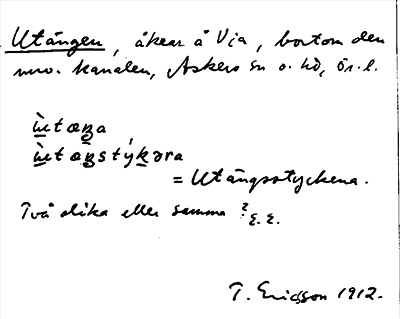 Utängen, åkear å Via, bortom den
nuv. kanalen, Askers sn o. hd, Ör. l.
ùtæŋa
ùtæŋstýkəra
= Utängsstyckena.
Två olika eller samma? E.E.
T. Ericsson 1912.